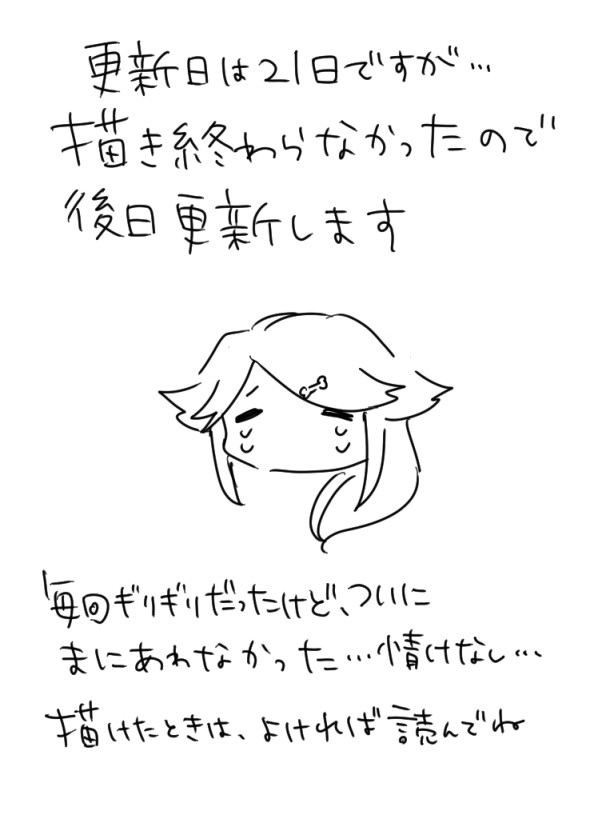 更新日は21日ですが…
描き終わらなかったので
後日更新します
毎回ギリギリだったけど、ついに
まにあわなかった…情けなし…
描けたときは、よければ読んでね